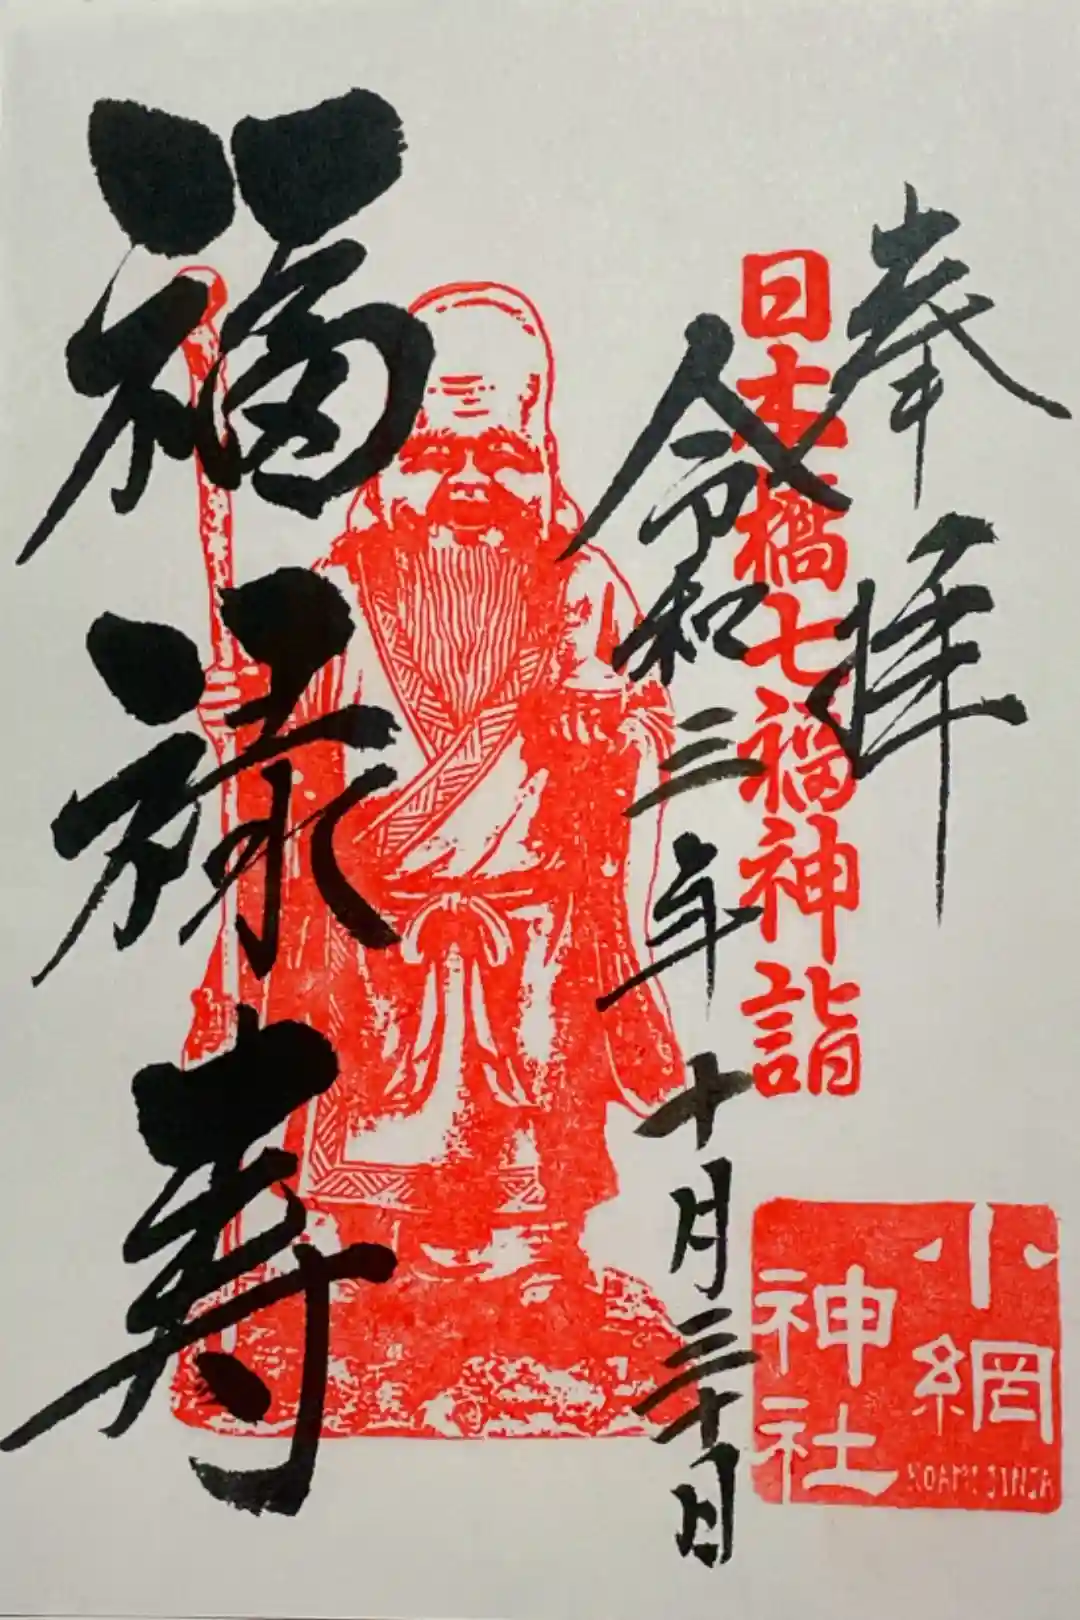 奉拝
日本橋七福神詣
令和三年十月三十日
福禄寿
小網
神社
KOAMI JINJA